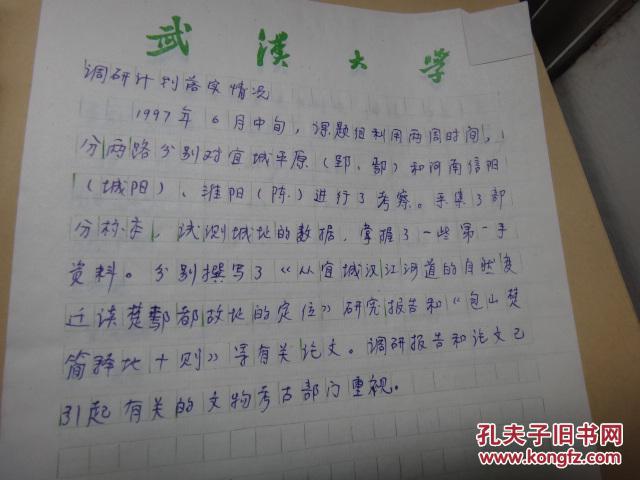 武汉大学
调研计划落实情况
1997年6月中旬，课题组利用两周时间，
分两路分别对宜城平原（郢、鄀）和河南信阳
（城阳）、淮阳（陈）进行了考察。采集了部
分标本，试测城址的数据，掌握了一些第一手
资料。分别撰写了《从宜城汉江河道的自然变
迁谈楚鄢都故址的定位》研究报告和《包山楚
简释地十则》等有关论文。调研报告和论文已
引起有关的文物考古部门重视。
孔夫子旧书网
www.kongfz.com